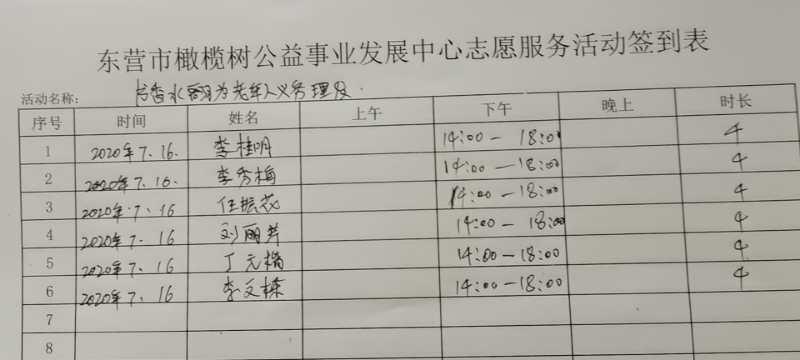 东营市橄榄树公益事业发展中心志愿服务活动签到表
活动名称： 书香水 为老年人义务理发.
序号 时间 姓名 上午 下午 晚上 时长
1 2020年7.16. 李桂明 14:00-18:00 4
2 2020年7.16. 李秀梅 14:00-18:00 4
3 2020年7.16 任 14:00-18:00 4
4 2020年7.16 刘丽 14:00-18:00 4
5 2020年7.16 丁元 14:00-18:00 4
6 2020年7.16 李文栋 14:00-18:00 4
7
8